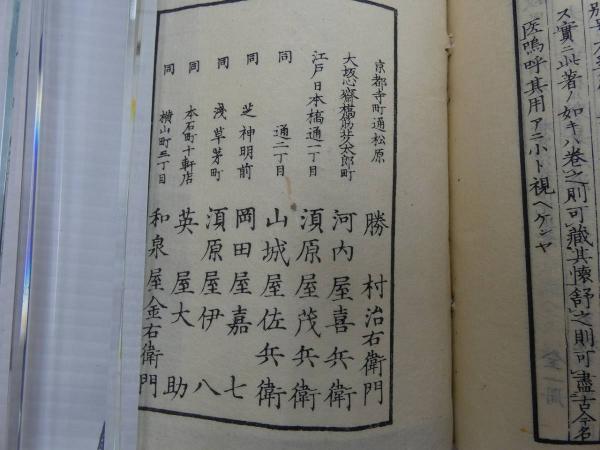 別
ス實ニ此著ノ如キハ卷之則可藏其懷舒之則可盡古今名
医嗚呼其用アニ小ト視ヘケンヤ
京都寺町通松原 勝村治右衛門
大坂心齋橋筋北太郎町 河内屋喜兵衛
江戸日本橋通一丁目 湏原屋茂兵衛
同 通二丁目 山城屋佐兵衛
同 芝神明前 岡田屋嘉七
同 淺草茅町 湏原屋伊八
同 本石町十軒店 英屋大助
同 橫山町三丁目 和泉屋金右衛門